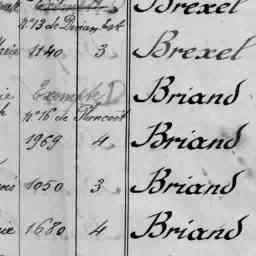 Brexel
N° 13 de
1140 3 Brexel
Exempté D Briand
N° 16 de
1969 4 Briand
1050 3 Briand
1680 4 Briand